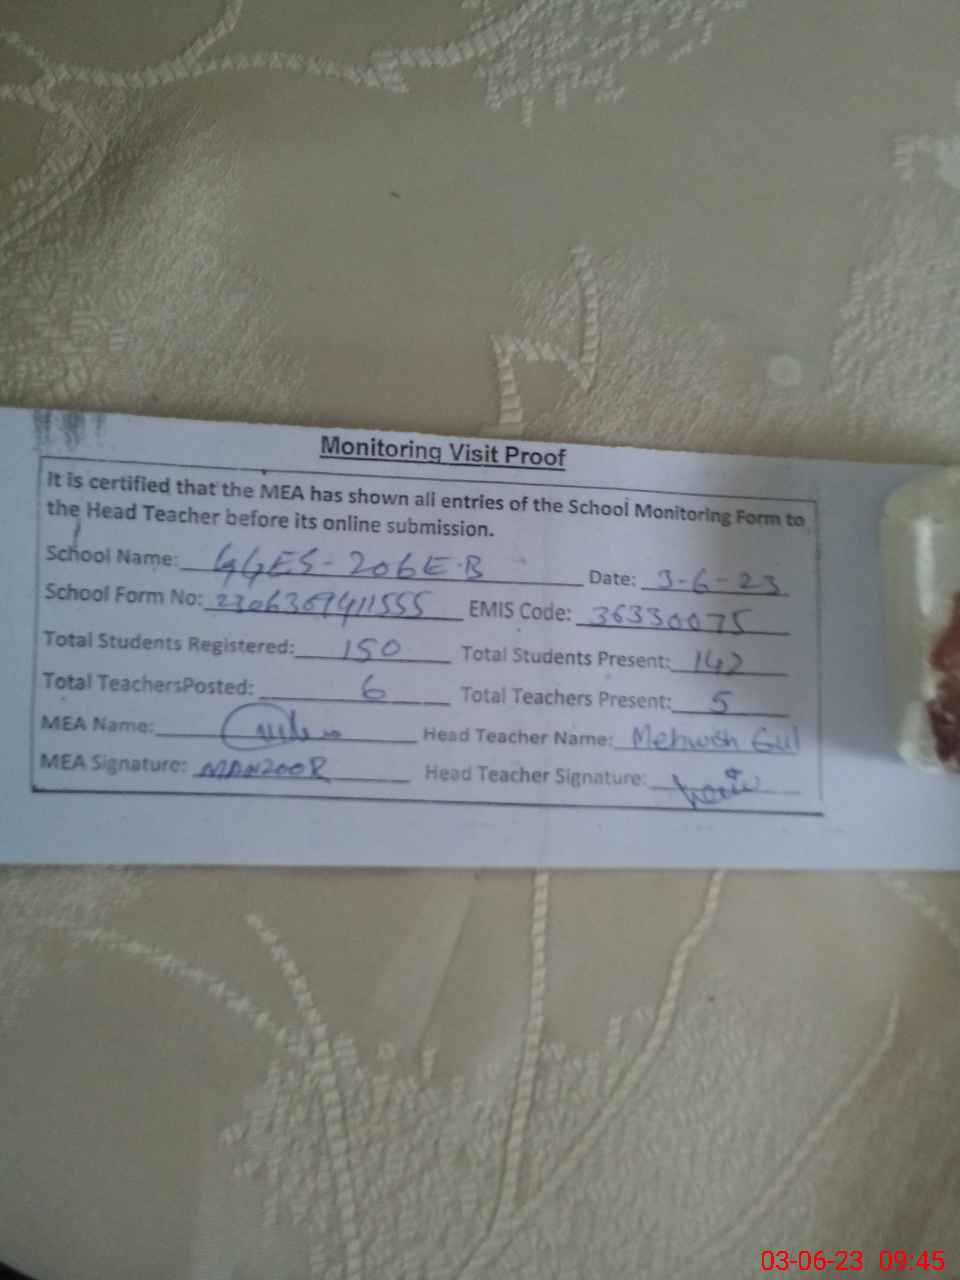 Monitoring Visit Proof
It is certified that the MEA has shown all entries of the School Monitoring Form to
the Head Teacher before its online submission.
School Name: GGES-206E.B Date: 3-6-23
School Form No: EMIS Code: 36330075
Total Students Registered: 150 Total Students Present: 142
Total TeachersPosted: 6 Total Teachers Present: 5
MEA Name: Head Teacher Name: Mehwish Gul
MEA Signature: MANZOOR Head Teacher Signature:
03-06-23 09:45